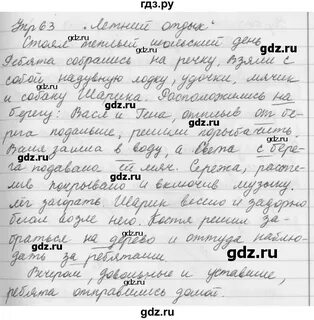 гдз.ру
Упр 63 "Летний отдых"
Стоял теплый июльский день.
Ребята собрались на речку. Взяли с
собой надувную лодку, удочки, мячик
и собаку Шарика. Расположились на
берегу: Вася и Гена, отплыв от бе-
рега подальше, решили порыбачить,
Ваня зашла в воду, а Света с бере-
га подавала ей мяч. Сережа, расте-
лив покрывало и включив музыку,
лёг загорать. Шарик весело и задорно
бегал возле него. Костя решил за-
браться на дерево и оттуда наблю-
дать за ребятами.
Вечером, довольные и уставшие,
ребята отправились домой.
gdz.ru